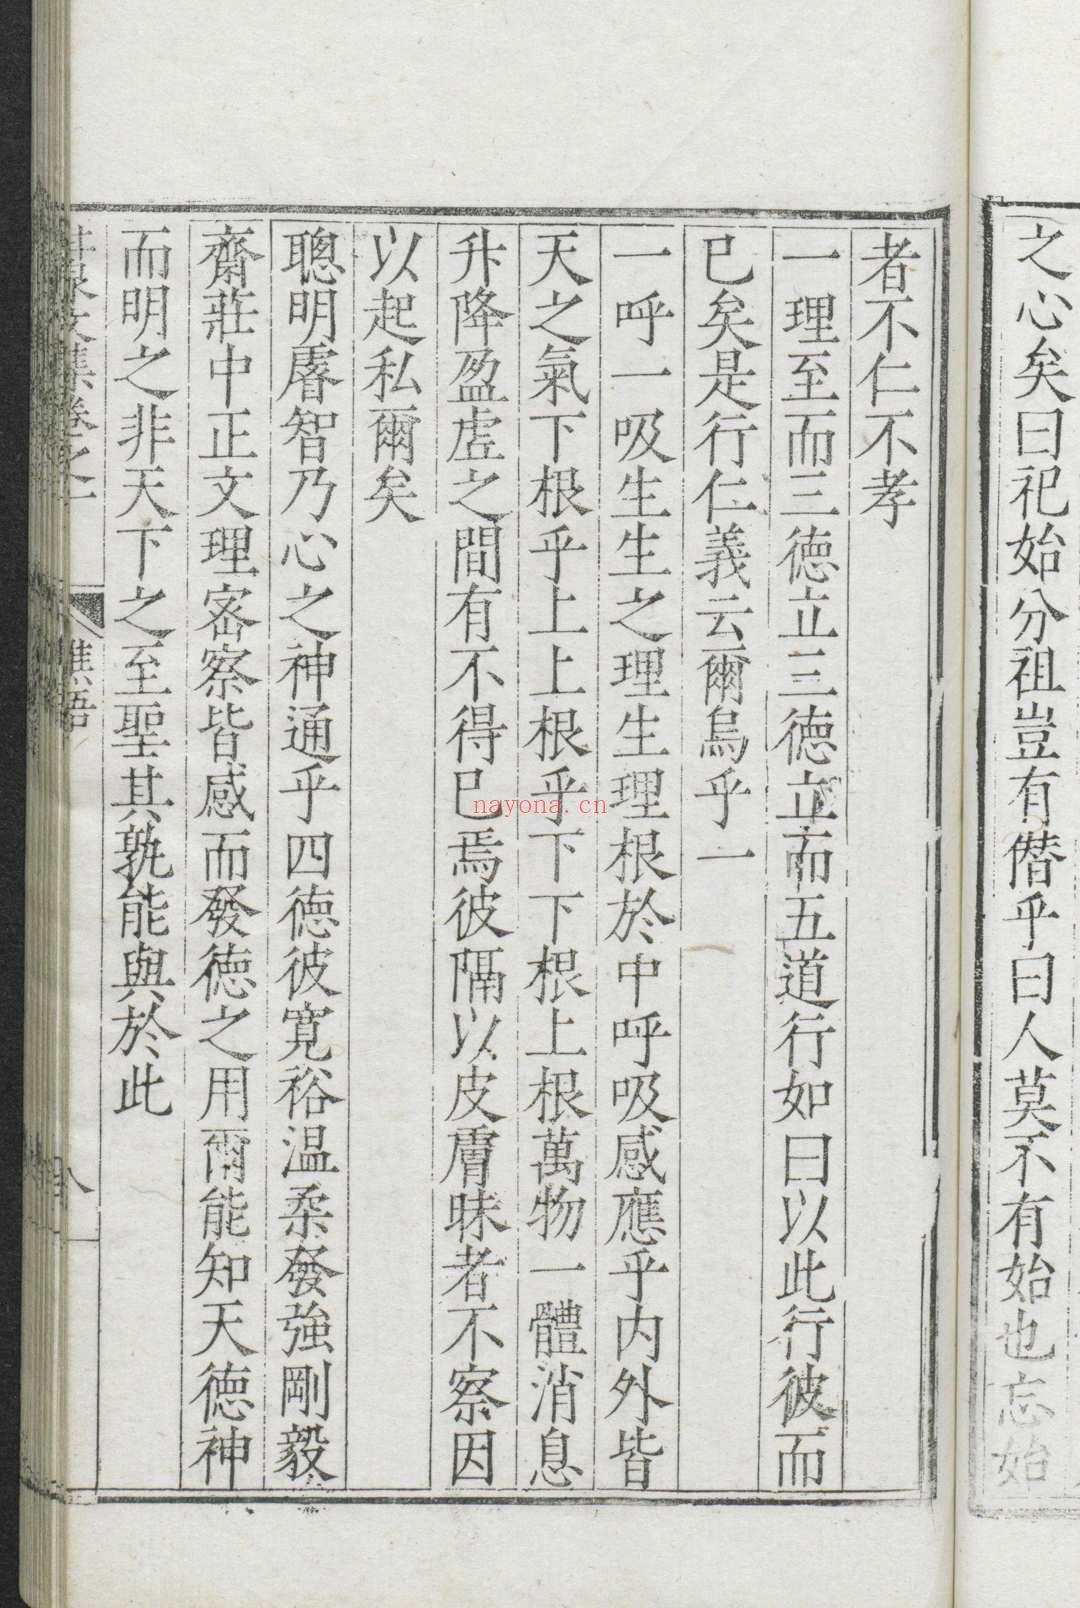 之心矣曰祀始分祖豈有僭乎曰人莫不有始也忘始
者不仁不孝
一理至而三徳立三徳立而五道行如曰以此行彼而
已矣是行仁義云爾烏乎一
一呼一吸生生之理生理根於中呼吸感應乎内外皆
天之氣下根乎上上根乎下下根上根萬物一體消息
升降盈虛之間有不得已焉彼隔以皮膚昧者不察因
以起私爾矣
聰明睿智乃心之神通乎四徳彼寛裕温柔發強剛毅
齋莊中正文理密察皆感而發徳之用爾能知天徳神
而明之非天下之至聖其孰能與於此
泉文集卷之一
樵語
八
nayona.cn